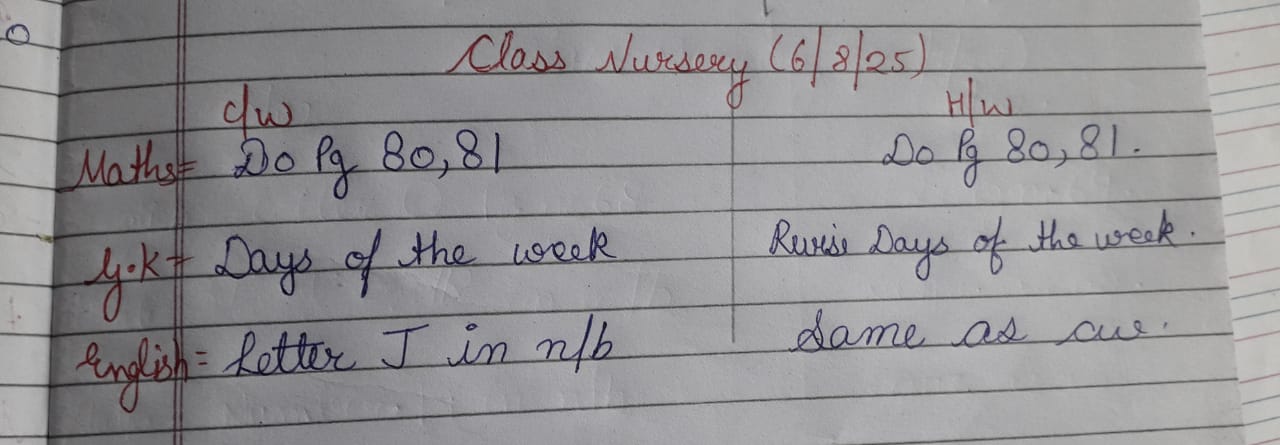 Class Nursery (6/8/25)
c/w H/W
Maths = Do Pg 80, 81 Do Pg 80, 81.
G.K = Days of the week Revise Days of the week.
English = Letter J in n/b Same as cw.